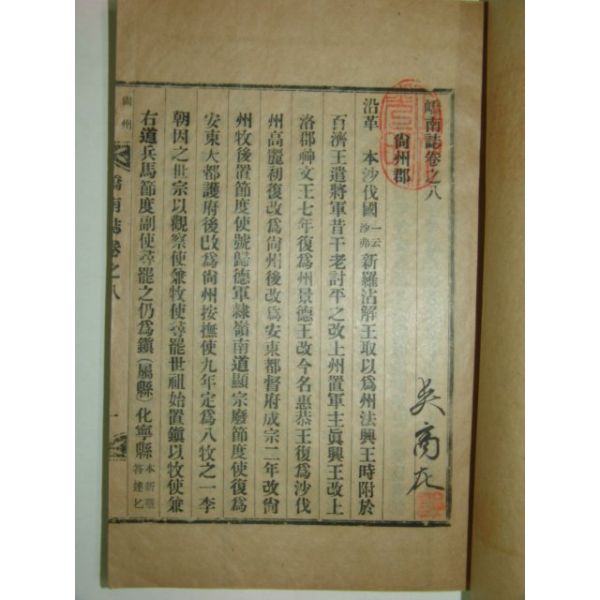 嶠南誌卷之八
尙州郡
沿革 本沙伐國一云沙弗新羅沾解王取以爲州法興王時附於
百濟王遣將軍昔于老討平之改上州置軍主眞興王改上
洛郡神文王七年復爲州景德王改今名惠恭王復爲沙伐
州高麗初復改爲尙州後改爲安東都督府成宗二年改尙
州牧後置節度使號歸德軍隸嶺南道顯宗廢節度使復爲
安東大都護府後改爲尙州按撫使九年定爲八牧之一李
朝因之世宗以觀察使兼牧使尋罷世祖始置鎭以牧使兼
右道兵馬節度副使尋罷之仍爲鎭(屬縣)化寧縣本新羅答達匕
尙州
嶠南誌卷之八
一